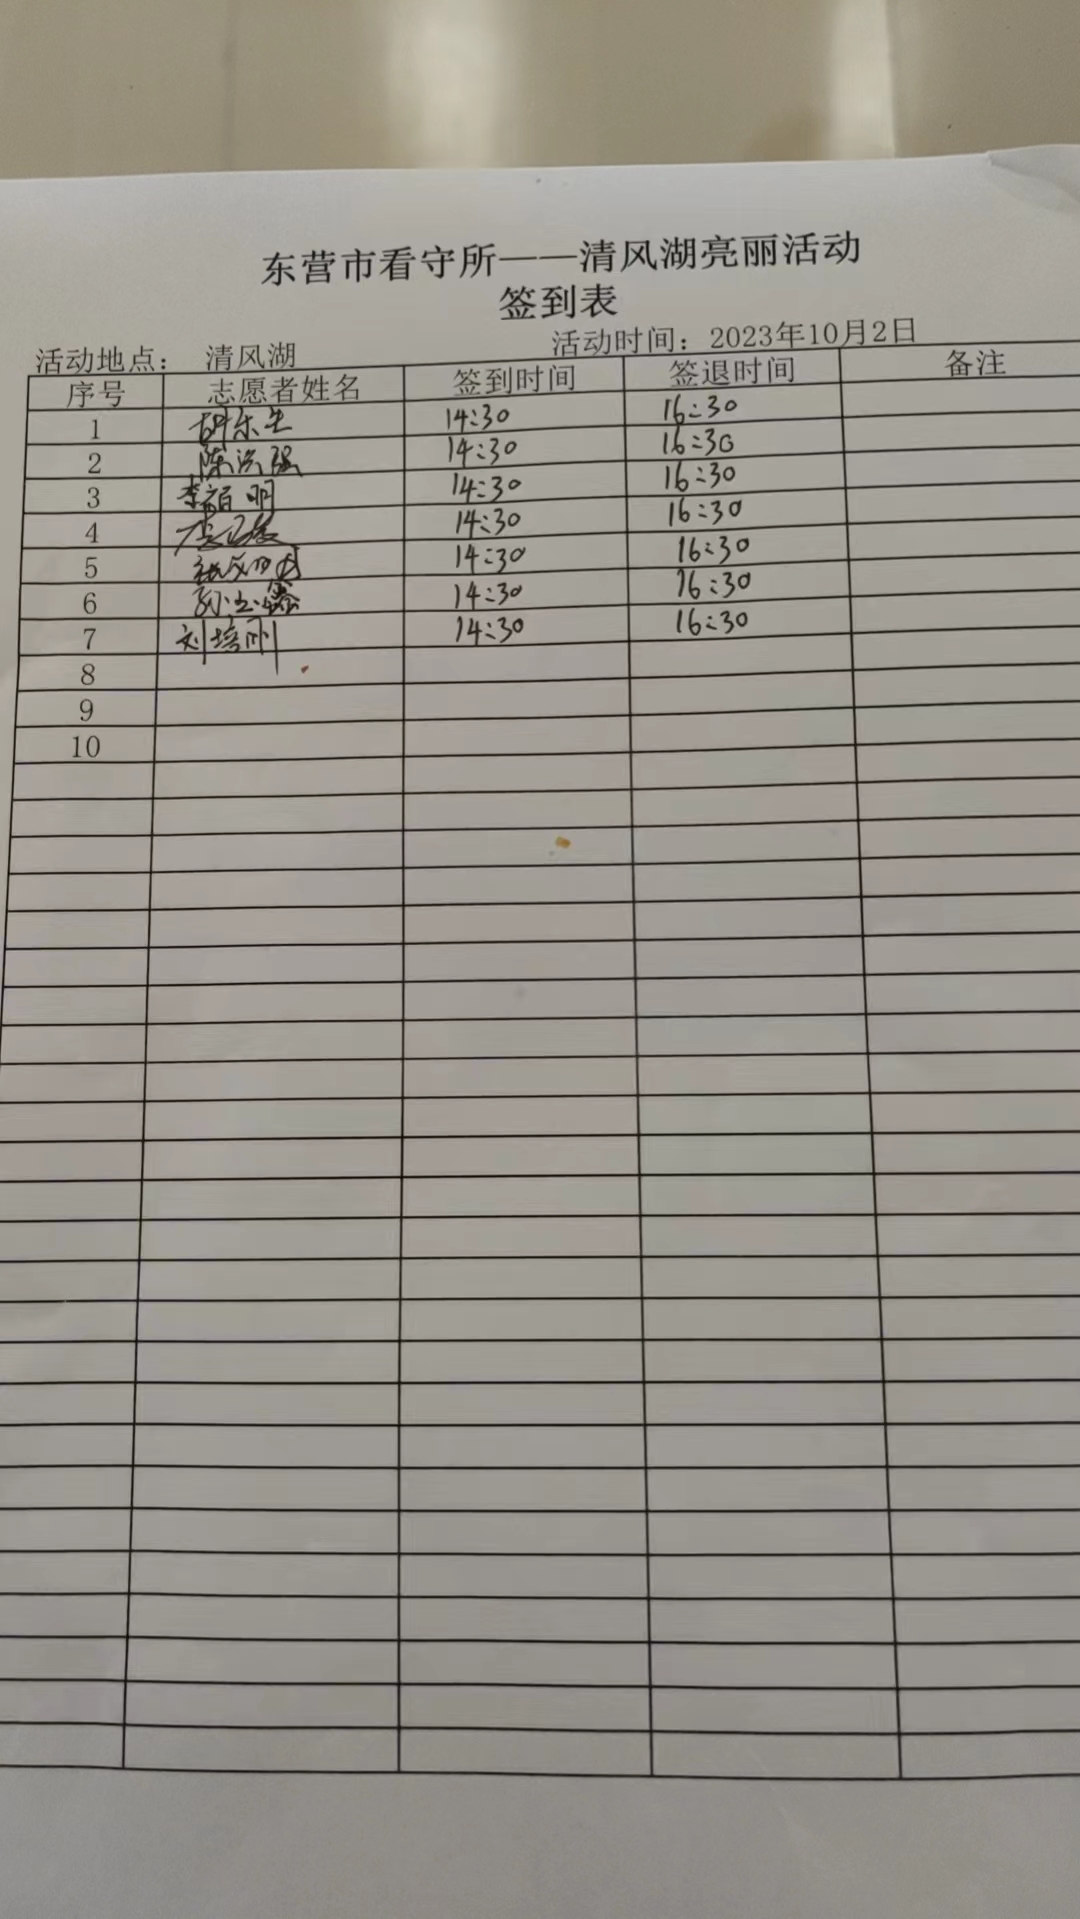 东营市看守所——清风湖亮丽活动
签到表
活动地点： 清风湖 活动时间：2023年10月2日
序号 志愿者姓名 签到时间 签退时间 备注
1 胡乐生 14:30 16:30
2 陈 强 14:30 16:30
3 李 明 14:30 16:30
4 14:30 16:30
5 14:30 16:30
6 孙 鑫 14:30 16:30
7 刘培刚 14:30 16:30
8
9
10